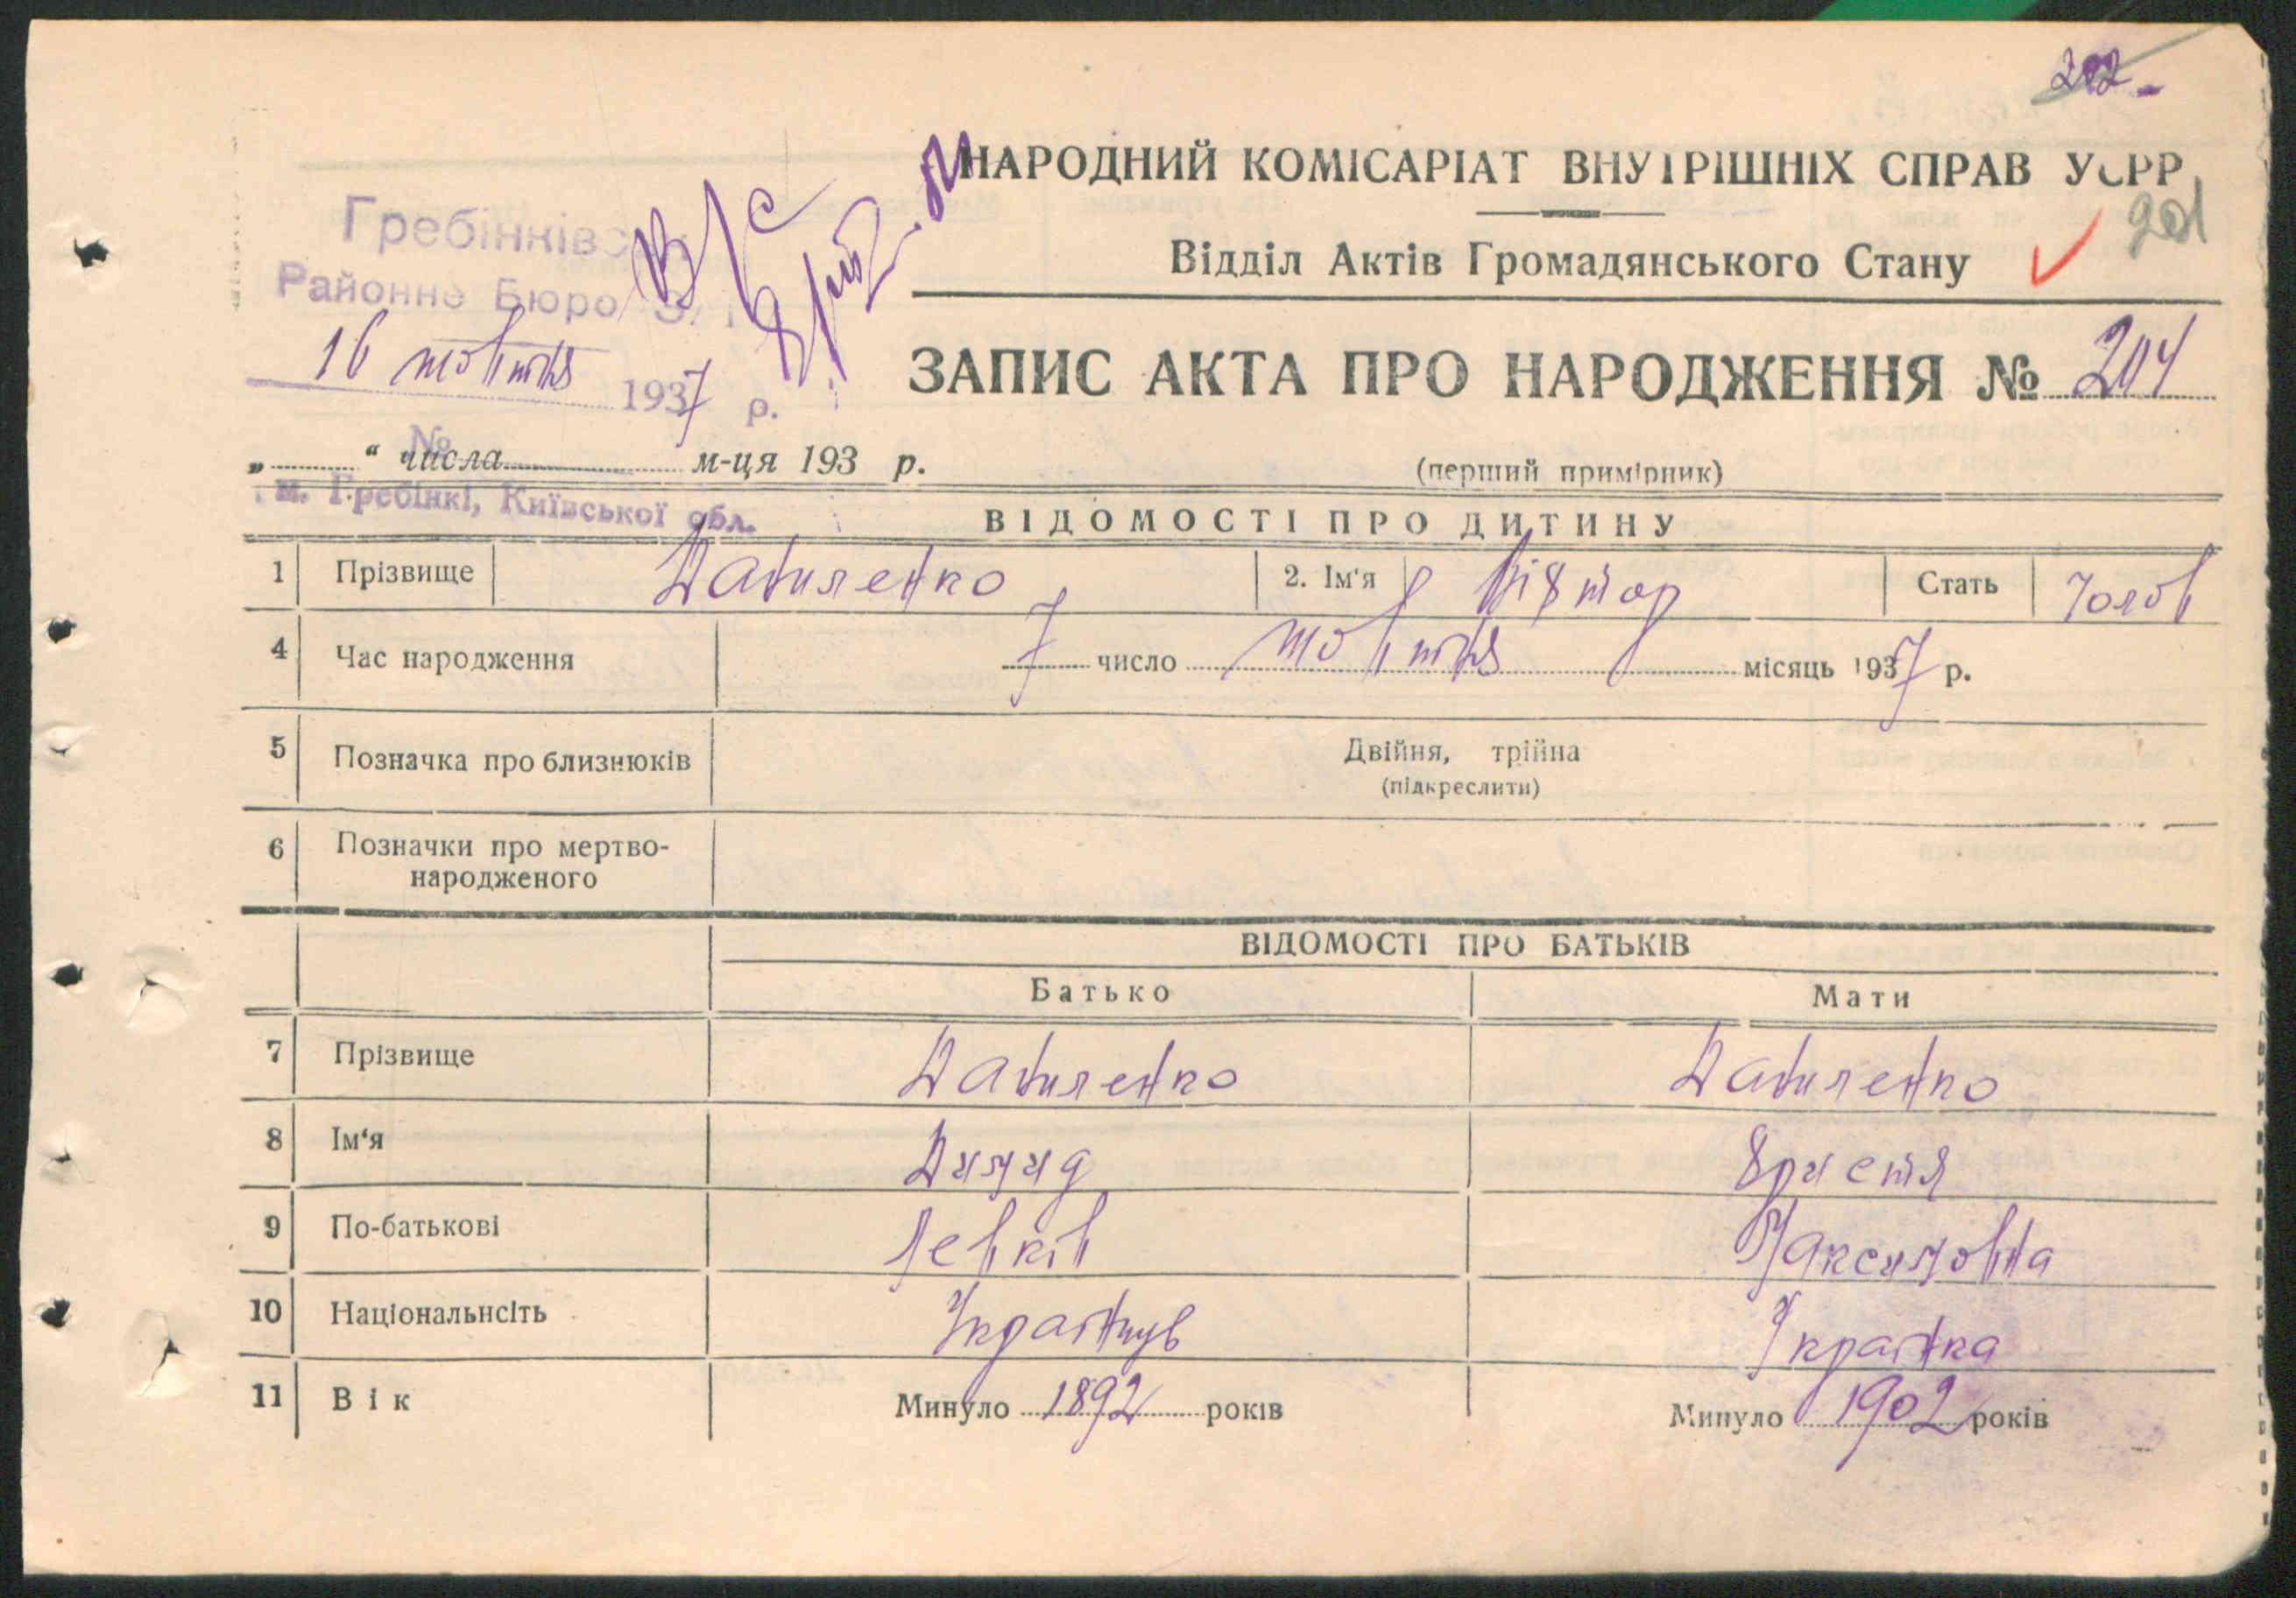 202
НАРОДНИЙ КОМІСАРІАТ ВНУТРІШНІХ СПРАВ УСРР
201
Гребінківс
Районне Бюро З
Відділ Актів Громадянського Стану
16 жовтня 1937 р.
ЗАПИС АКТА ПРО НАРОДЖЕННЯ № 204
№
„ “ числа м-ця 193 р.
(перший примірник)
м. Гребінкі, Київської обл.
ВІДОМОСТІ ПРО ДИТИНУ
1 Прізвище Даниленко 2. Ім'я Віктор Стать Чолов
4 Час народження 7 число жовтня місяць 1937 р.
5 Позначка про близнюків Двійня, трійна
(підкреслити)
6 Позначки про мертво-
народженого
ВІДОМОСТІ ПРО БАТЬКІВ
Батько Мати
7 Прізвище Даниленко Даниленко
8 Ім‘я Димид Христя
9 По-батькові Левків Максимовна
10 Національнсіть Українць Українка
11 Вік Минуло 1892 років Минуло 1902 років